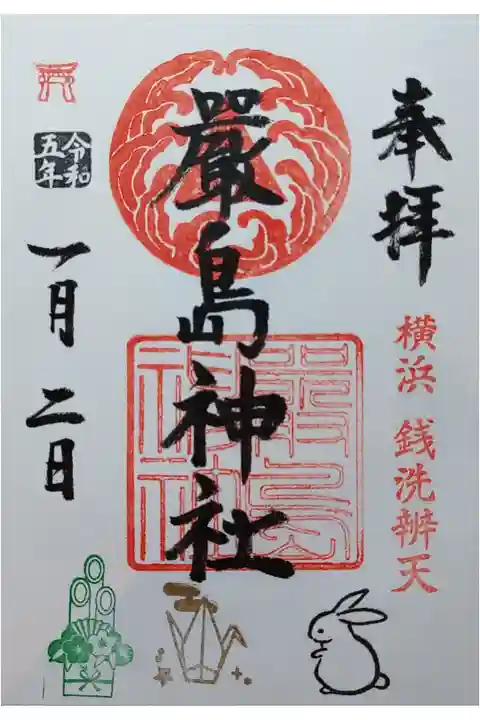 奉拝
横浜 銭洗辨天
嚴島神社
嚴島神社
令和
五年
一月二日